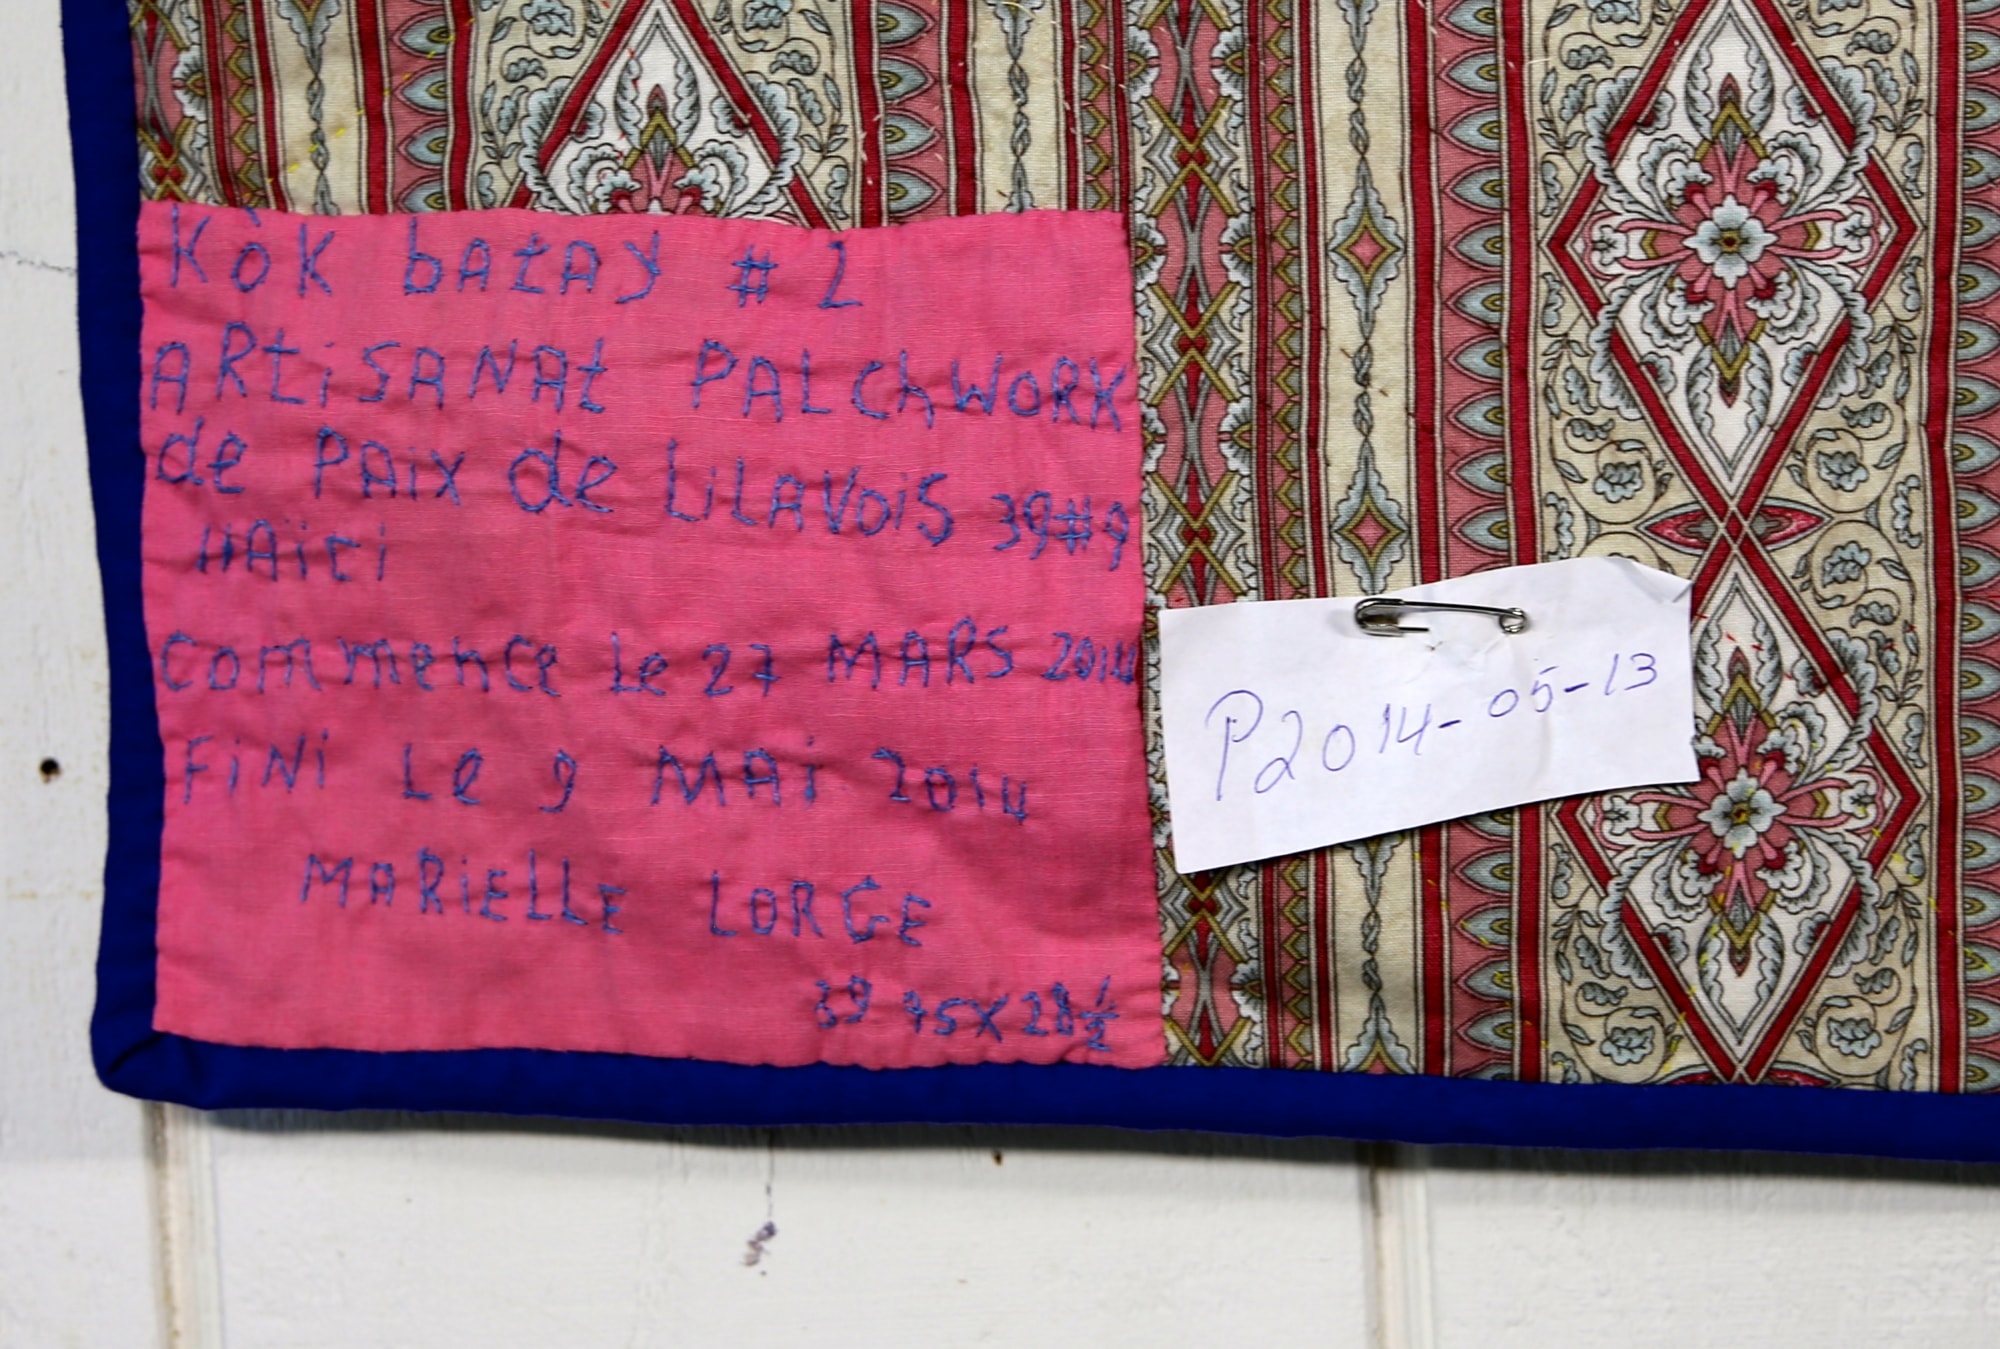 Kòk bAtAy # 2
ARtiSANAt PALChWORK
de PAix de LiLAVoiS 39#9
HAïti
Commence Le 27 MARS 2014
FiNi Le 9 MAi 2014
MARiELLE LORGE
39 75X28½
P2014-05-13